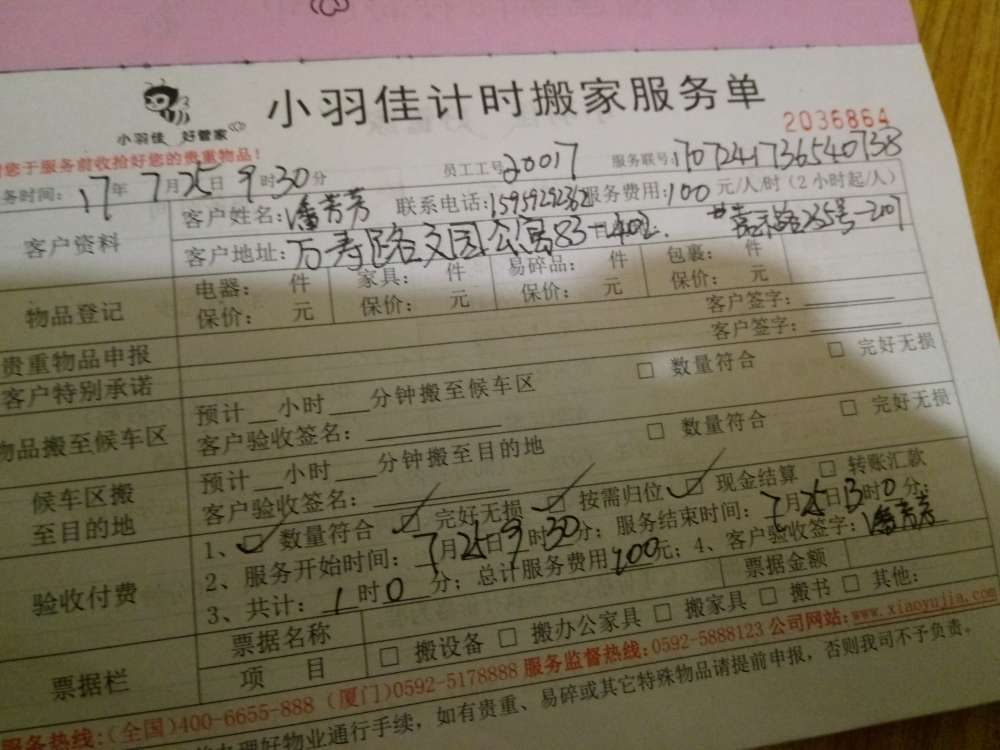 小羽佳 好管家
小羽佳计时搬家服务单
2036864
您于服务前收拾好您的贵重物品!
务时间: 17年7月25日9时30分 员工工号20017 服务联号:170724173654 0738
客户资料
客户姓名:潘芳芳 联系电话:15959292362 服务费用:100元/人/时(2小时起/人)
客户地址:万寿路文园公寓83-402
物品登记
电器: 件 家具: 件 易碎品: 件 包裹: 件
保价: 元 保价: 元 保价: 元 保价: 元
贵重物品申报 客户签字:
客户特别承诺 客户签字:
物品搬至候车区
预计 小时 分钟搬至候车区 □ 数量符合 □ 完好无损
客户验收签名:
候车区搬至目的地
预计 小时 分钟搬至目的地 □ 数量符合 □ 完好无损
客户验收签名:
验收付费
1、☑ 数量符合 ☑ 完好无损 ☑ 按需归位 ☑ 现金结算 □ 转账汇款
2、服务开始时间:7月25日9时30分;服务结束时间:7月25日 时0分;
3、共计:1时0分;总计服务费用200元;4、客户验收签字:潘芳芳
票据栏
票据名称 票据金额
项 目 □ 搬设备 □ 搬办公家具 □ 搬家具 □ 搬书 □ 其他:
服务热线:(全国)400-6655-888 (厦门)0592-5178888 服务监督热线:0592-5888123 公司网站:www.xiaoyujia.com
办理好物业通行手续,如有贵重、易碎或其它特殊物品请提前申报,否则我司不予负责。